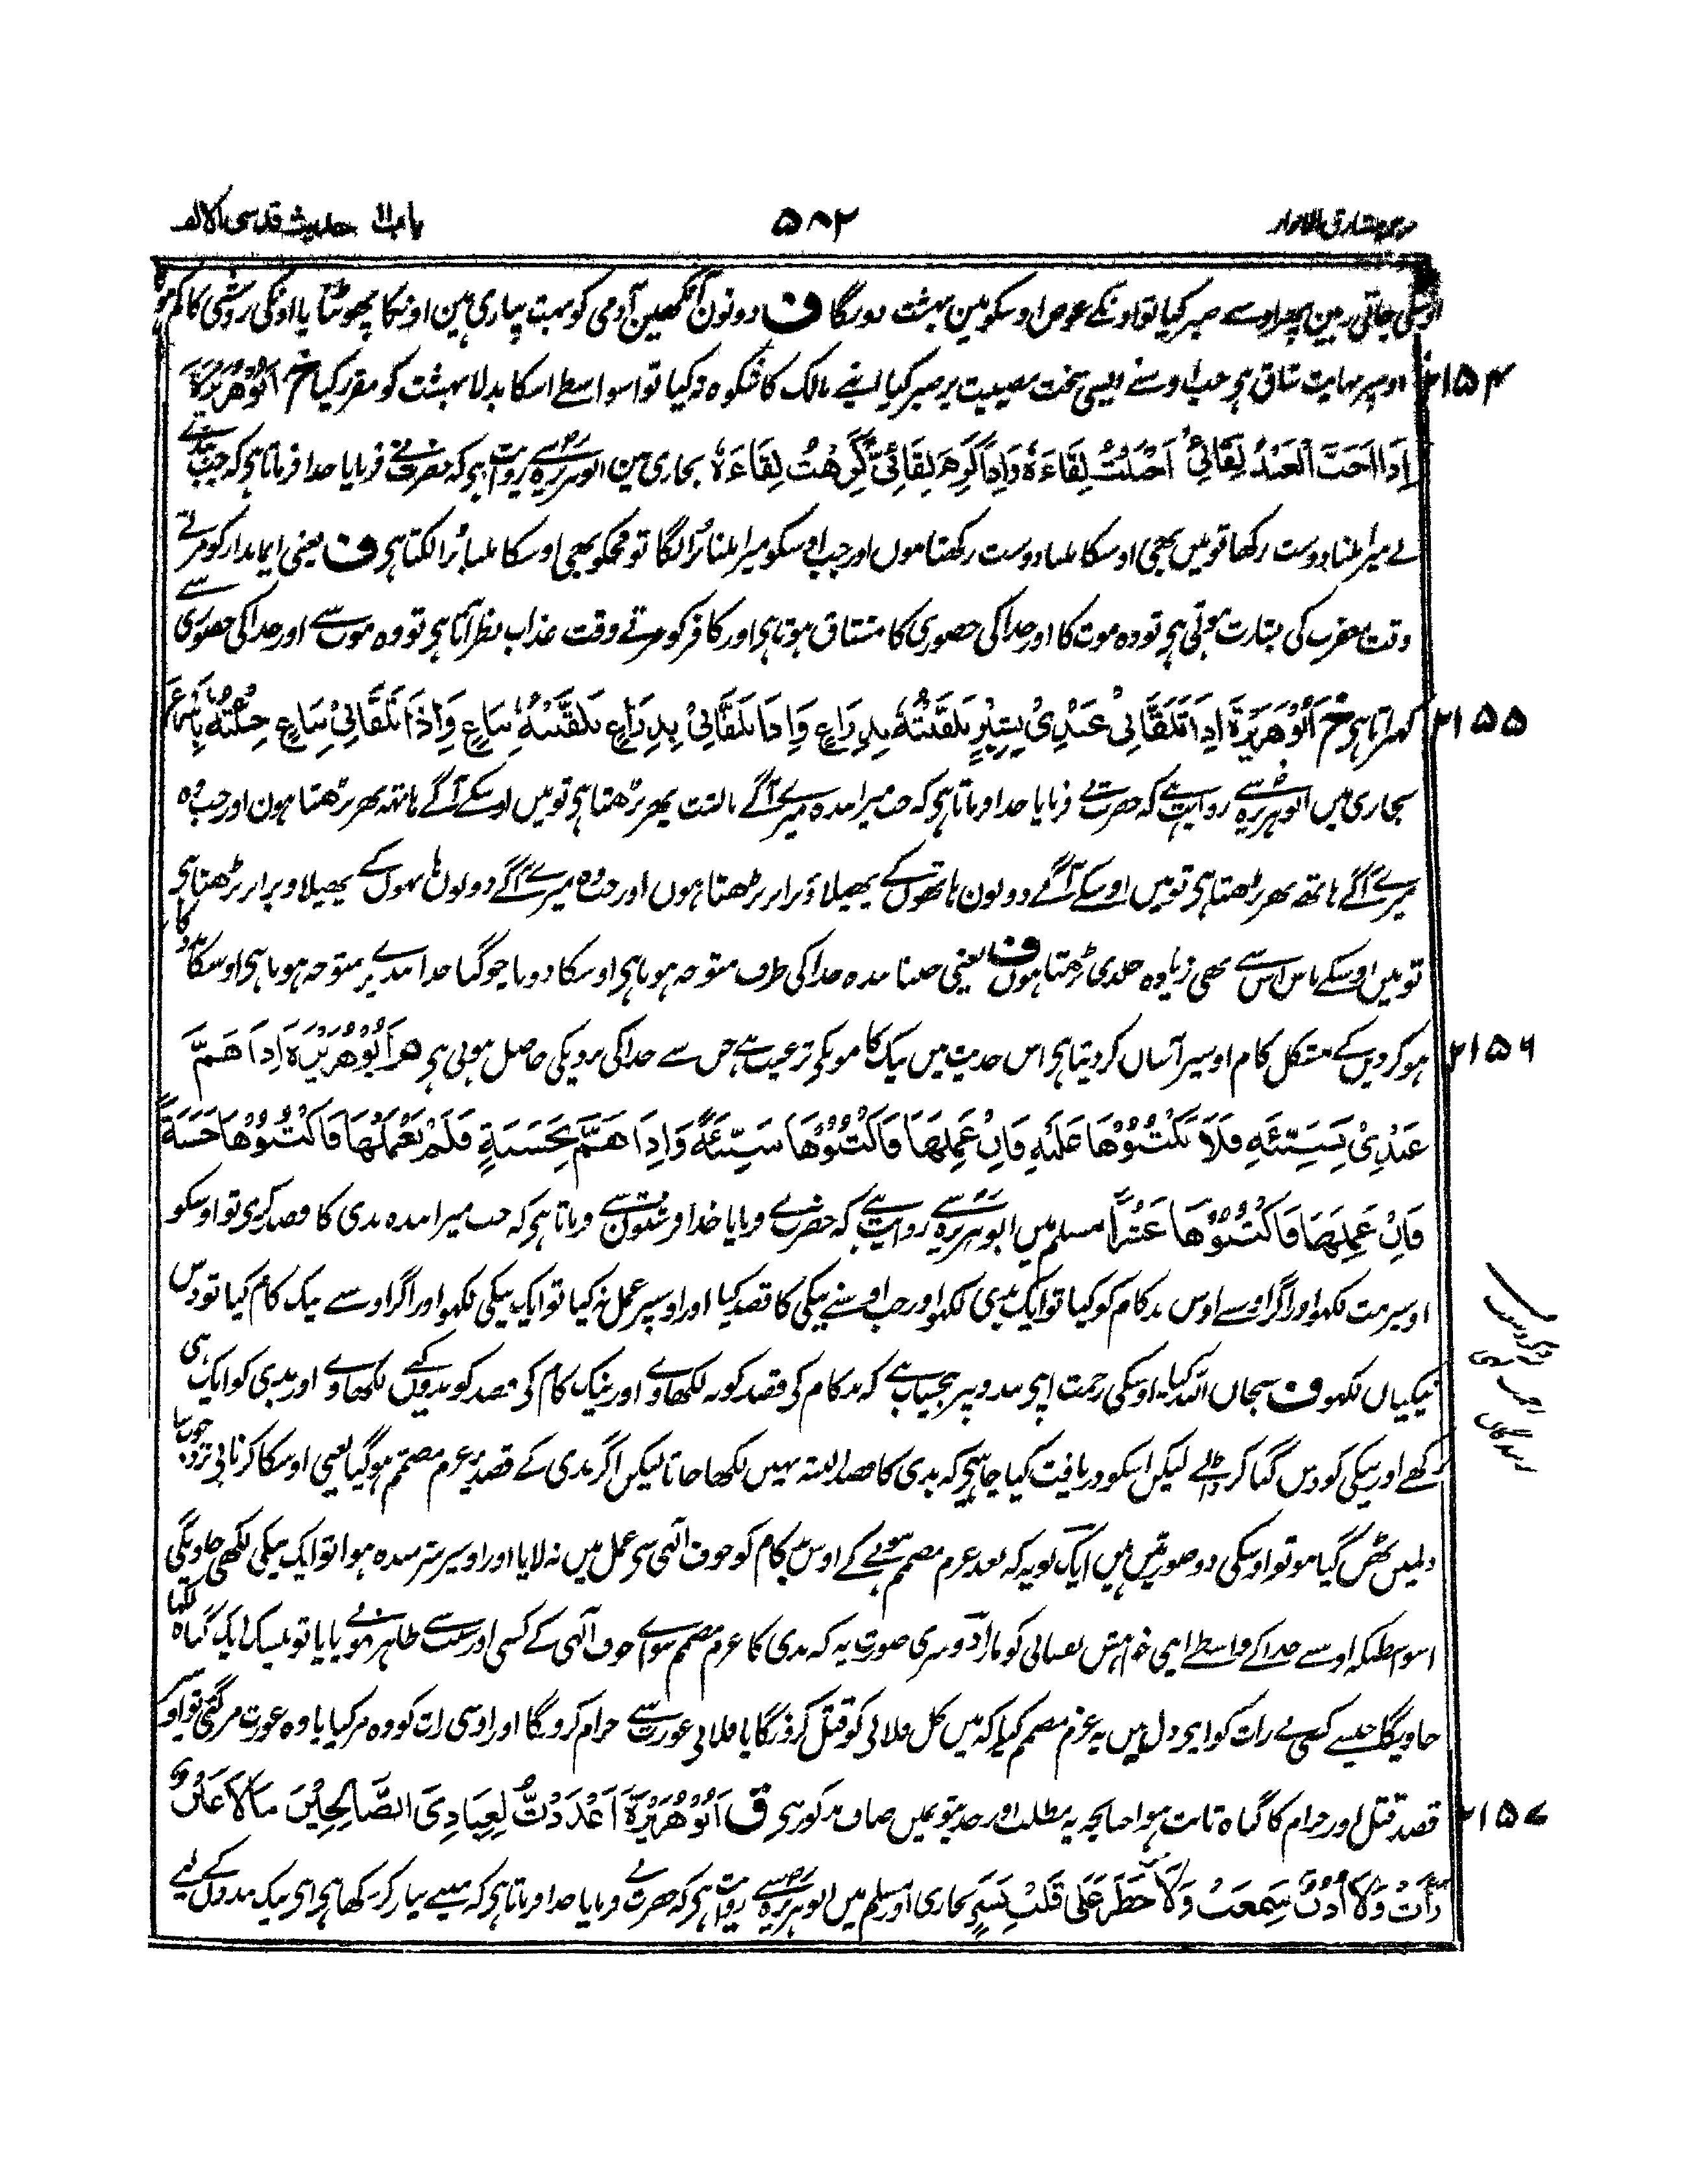 ترجمہ مشارق الانوار
۵۸۲
باب ۱۱ حدیث قدسی الالف
اوسکی جاتی رہین پھر اوسے صبر کیا تو اونکے عوض اوسکو مین بہشت دونگا ف دونون آنکھین آدمی کو بہت پیاری ہین اونکا پھوٹنا یا اونکی روشنی کا کم ہونا
۲۱۵۴ اوسپر نہایت شاق ہی جب اوسنے ایسی سخت مصیبت پر صبر کیا اپنے مالک کا شکوہ نہ کیا تو اسواسطے اسکا بدلا بہشت کو مقرر کیا خ اَبُوْهُرَيْرَةَ
اِذَا اَحَبَّ الْعَبْدُ لِقَائِيْ اَحْبَبْتُ لِقَاءَهٗ وَاِذَا كَرِهَ لِقَائِيْ كَرِهْتُ لِقَاءَهٗ بخاری مین ابوہریرہؓ سے روایت ہی کہ حضرتؐ نے فرمایا خدا فرماتا ہی کہ جب بندے
نے میرا ملنا دوست رکھا تو میں بھی اوسکا ملنا دوست رکھتا ہوں اور جب اوسکو میرا ملنا بُرا لگا تو مجھکو بھی اوسکا ملنا بُرا لگتا ہی ف یعنی ایماندار کو مرتے
وقت مغفرت کی بشارت ہوتی ہی تو وہ موت کا اور خدا کی حضوری کا مشتاق ہوتا ہی اور کافر کو مرتے وقت عذاب نظر آتا ہی تو وہ موت سے اور خدا کی حضوری سے
۲۱۵۵ گھبراتا ہی خ اَبُوْهُرَيْرَةَ اِذَا تَلَقَّانِيْ عَبْدِيْ بِشِبْرٍ تَلَقَّيْتُهٗ بِذِرَاعٍ وَاِذَا تَلَقَّانِيْ بِذِرَاعٍ تَلَقَّيْتُهٗ بِبَاعٍ وَاِذَا تَلَقَّانِيْ بِبَاعٍ جِئْتُهٗ بِاَسْرَعَ
بخاری میں ابوہریرہؓ سے روایت ہے کہ حضرت نے فرمایا خدا فرماتا ہی کہ جب میرا بندہ میرے آگے بالشت بھر بڑھتا ہی تو میں اوسکے آگے ہاتھ بھر بڑھتا ہون اور جب وہ
میرے آگے ہاتھ بھر بڑھتا ہی تو میں اوسکے آگے دونون ہاتھوں کے پھیلاؤ برابر بڑھتا ہوں اور جب وہ میرے آگے دونوں ہاتھوں کے پھیلاو برابر بڑھتا ہی
تو میں اوسکے پاس اس سے بھی زیادہ جلدی بڑھتا ہوں ف یعنی جتنا بندہ خدا کی طرف متوجہ ہوتا ہی اوسکا دونا چوگنا خدا بندے پر متوجہ ہوتا ہی اوسکا مددگار
۲۱۵۶ ہو کر دین کے مشکل کام اوسپر آسان کر دیتا ہی اس حدیث میں نیک کامونکی ترغیب ہے جس سے خدا کی نزدیکی حاصل ہوتی ہی هر اَبُوْهُرَيْرَةَ اِذَا هَمَّ
عَبْدِيْ بِسَيِّئَةٍ فَلَا تَكْتُبُوْهَا عَلَيْهِ فَاِنْ عَمِلَهَا فَاكْتُبُوْهَا سَيِّئَةً وَاِذَا هَمَّ بِحَسَنَةٍ فَلَمْ يَعْمَلْهَا فَاكْتُبُوْهَا حَسَنَةً
فَاِنْ عَمِلَهَا فَاكْتُبُوْهَا عَشْرًا مسلم میں ابوہریرہؓ سے روایت ہے کہ حضرت نے فرمایا خدا فرشتون سے فرماتا ہی کہ جب میرا بندہ بدی کا قصد کری تو اوسکو
اوسپر مت لکھو اور اگر اوسے اوس بدکام کو کیا تو ایک بدی لکھو اور جب اوسنے نیکی کا قصد کیا اور اوسپر عمل نہ کیا تو ایک نیکی لکھو اور اگر اوسے نیک کام کیا تو دس
نیکیاں لکھو ف سبحان اللہ کیا اوسکی رحمت اپنی بندونپر بیحساب ہے کہ بدکام کی قصد کو نہ لکھاوے اور نیک کام کی قصد کو بدون کیے لکھاوے اور بدی کو ایک ہی
رکھے اور نیکی کو دس گنا کر ڈالے لیکن اسکو دریافت کیا چاہیے کہ بدی کا قصد البتہ نہیں لکھا جاتا لیکن اگر بدی کے قصد پر عزم مصمم ہو گیا یعنی اوسکا کرنا بی تردد خوب سا
دلمیں ٹھن گیا ہو تو اوسکی دو صورتیں ہیں ایک تو یہ کہ بعد عزم مصمم ہونے کے اوس کام کو خوف الٰہی سی عمل میں نہ لایا اور اوسپر شرمندہ ہوا تو ایک نیکی لکھی جاویگی
اسواسطے کہ اوسے خدا کے واسطے اپنی خواہش نفسانی کو مارا دوسری صورت یہ کہ بدی کا عزم مصمم سواے خوف الٰہی کے کسی اور سبب سے ظاہر نہونے پایا تو بیشک ایک گناہ لکھا
جاویگا جیسے کسی نے رات کو اپنی دل میں یہ عزم مصمم کیا کہ میں کل فلانی کو قتل کرونگا یا فلانی عورت سے حرام کرونگا اور اوسی رات کو وہ مر گیا یا وہ عورت مر گئی تو اوسکو
۲۱۵۷ قصد قتل اور حرام کا گناہ ثابت ہوا چنانچہ یہ مطلب اور حدیثونمیں صاف مذکور ہی ق اَبُوْهُرَيْرَةَ اَعْدَدْتُ لِعِبَادِيَ الصَّالِحِيْنَ مَا لَا عَيْنٌ
رَأَتْ وَلَا اُذُنٌ سَمِعَتْ وَلَا خَطَرَ عَلٰى قَلْبِ بَشَرٍ بخاری اور مسلم میں ابوہریرہؓ سے روایت ہی کہ حضرت نے فرمایا خدا فرماتا ہی کہ مینے تیار کر رکھا ہی اپنی نیک بندوں کے لیے